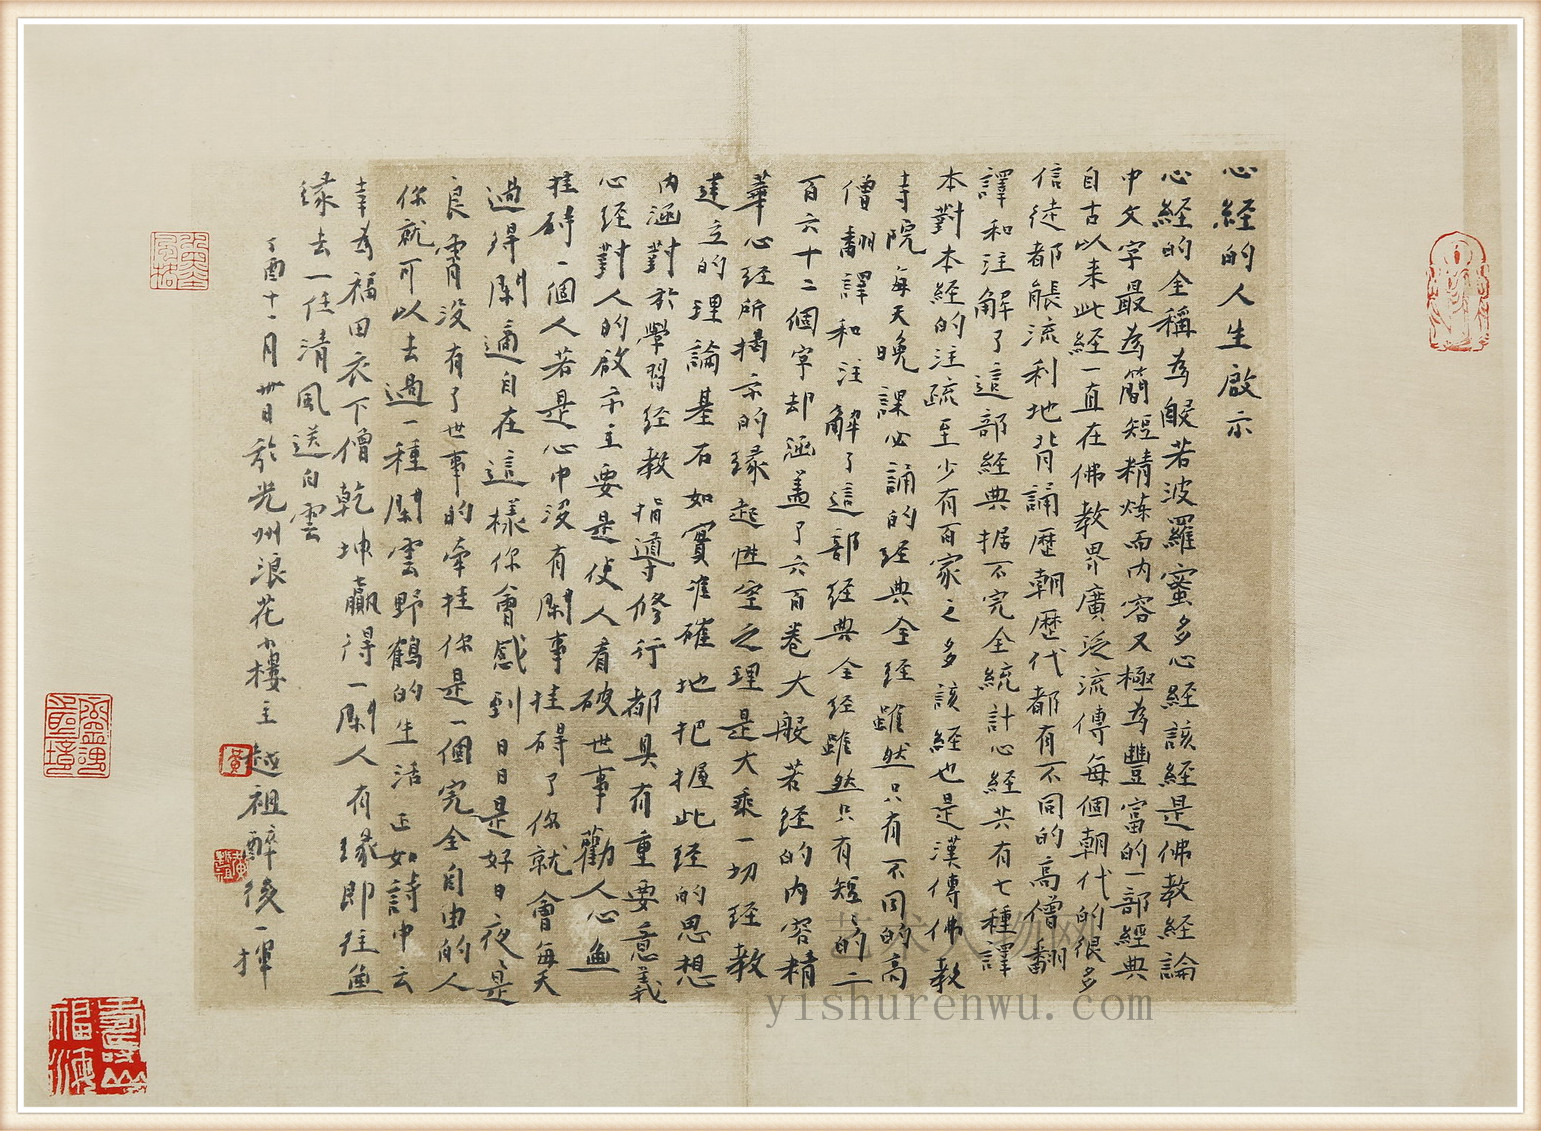 心經的人生啟示
心經的全稱為般若波羅蜜多心經該經是佛教經論
中文字最為簡短精炼而内容又極為豐富的一部經典
自古以来此經一直在佛教界廣泛流傳每個朝代的很多
信徒都能流利地背誦歷朝歷代都有不同的高僧翻
譯和注解了這部經典据不完全統計心經共有七種譯
本對本經的注疏至少有百家之多該經也是漢傳佛教
寺院每天晚課必誦的經典全經雖然只有不同的高
僧翻譯和注解了這部經典全經雖然只有短短的二
百六十二個字却涵盖了六百卷大般若經的内容精
華心經所揭示的緣起性空之理是大乘一切經教
建立的理論基石如實準確地把握此經的思想
内涵對於學習經教指導修行都具有重要意義
心經對人的啟示主要是使人看破世事勸人心無
挂碍一個人若是心中没有閑事挂碍了你就會每天
過得閑適自在這樣你會感到日日是好日夜夜是
良宵没有了世事的牵挂你是一個完全自由的人
你就可以去過一種閑雲野鶴的生活正如詩中云
幸為福田衣下僧乾坤贏得一閑人有緣即住無
緣去一任清風送白雲
丁酉十一月卅日於光州浪花小樓主越祖醉後一揮
艺术人物网
yishurenwu.com